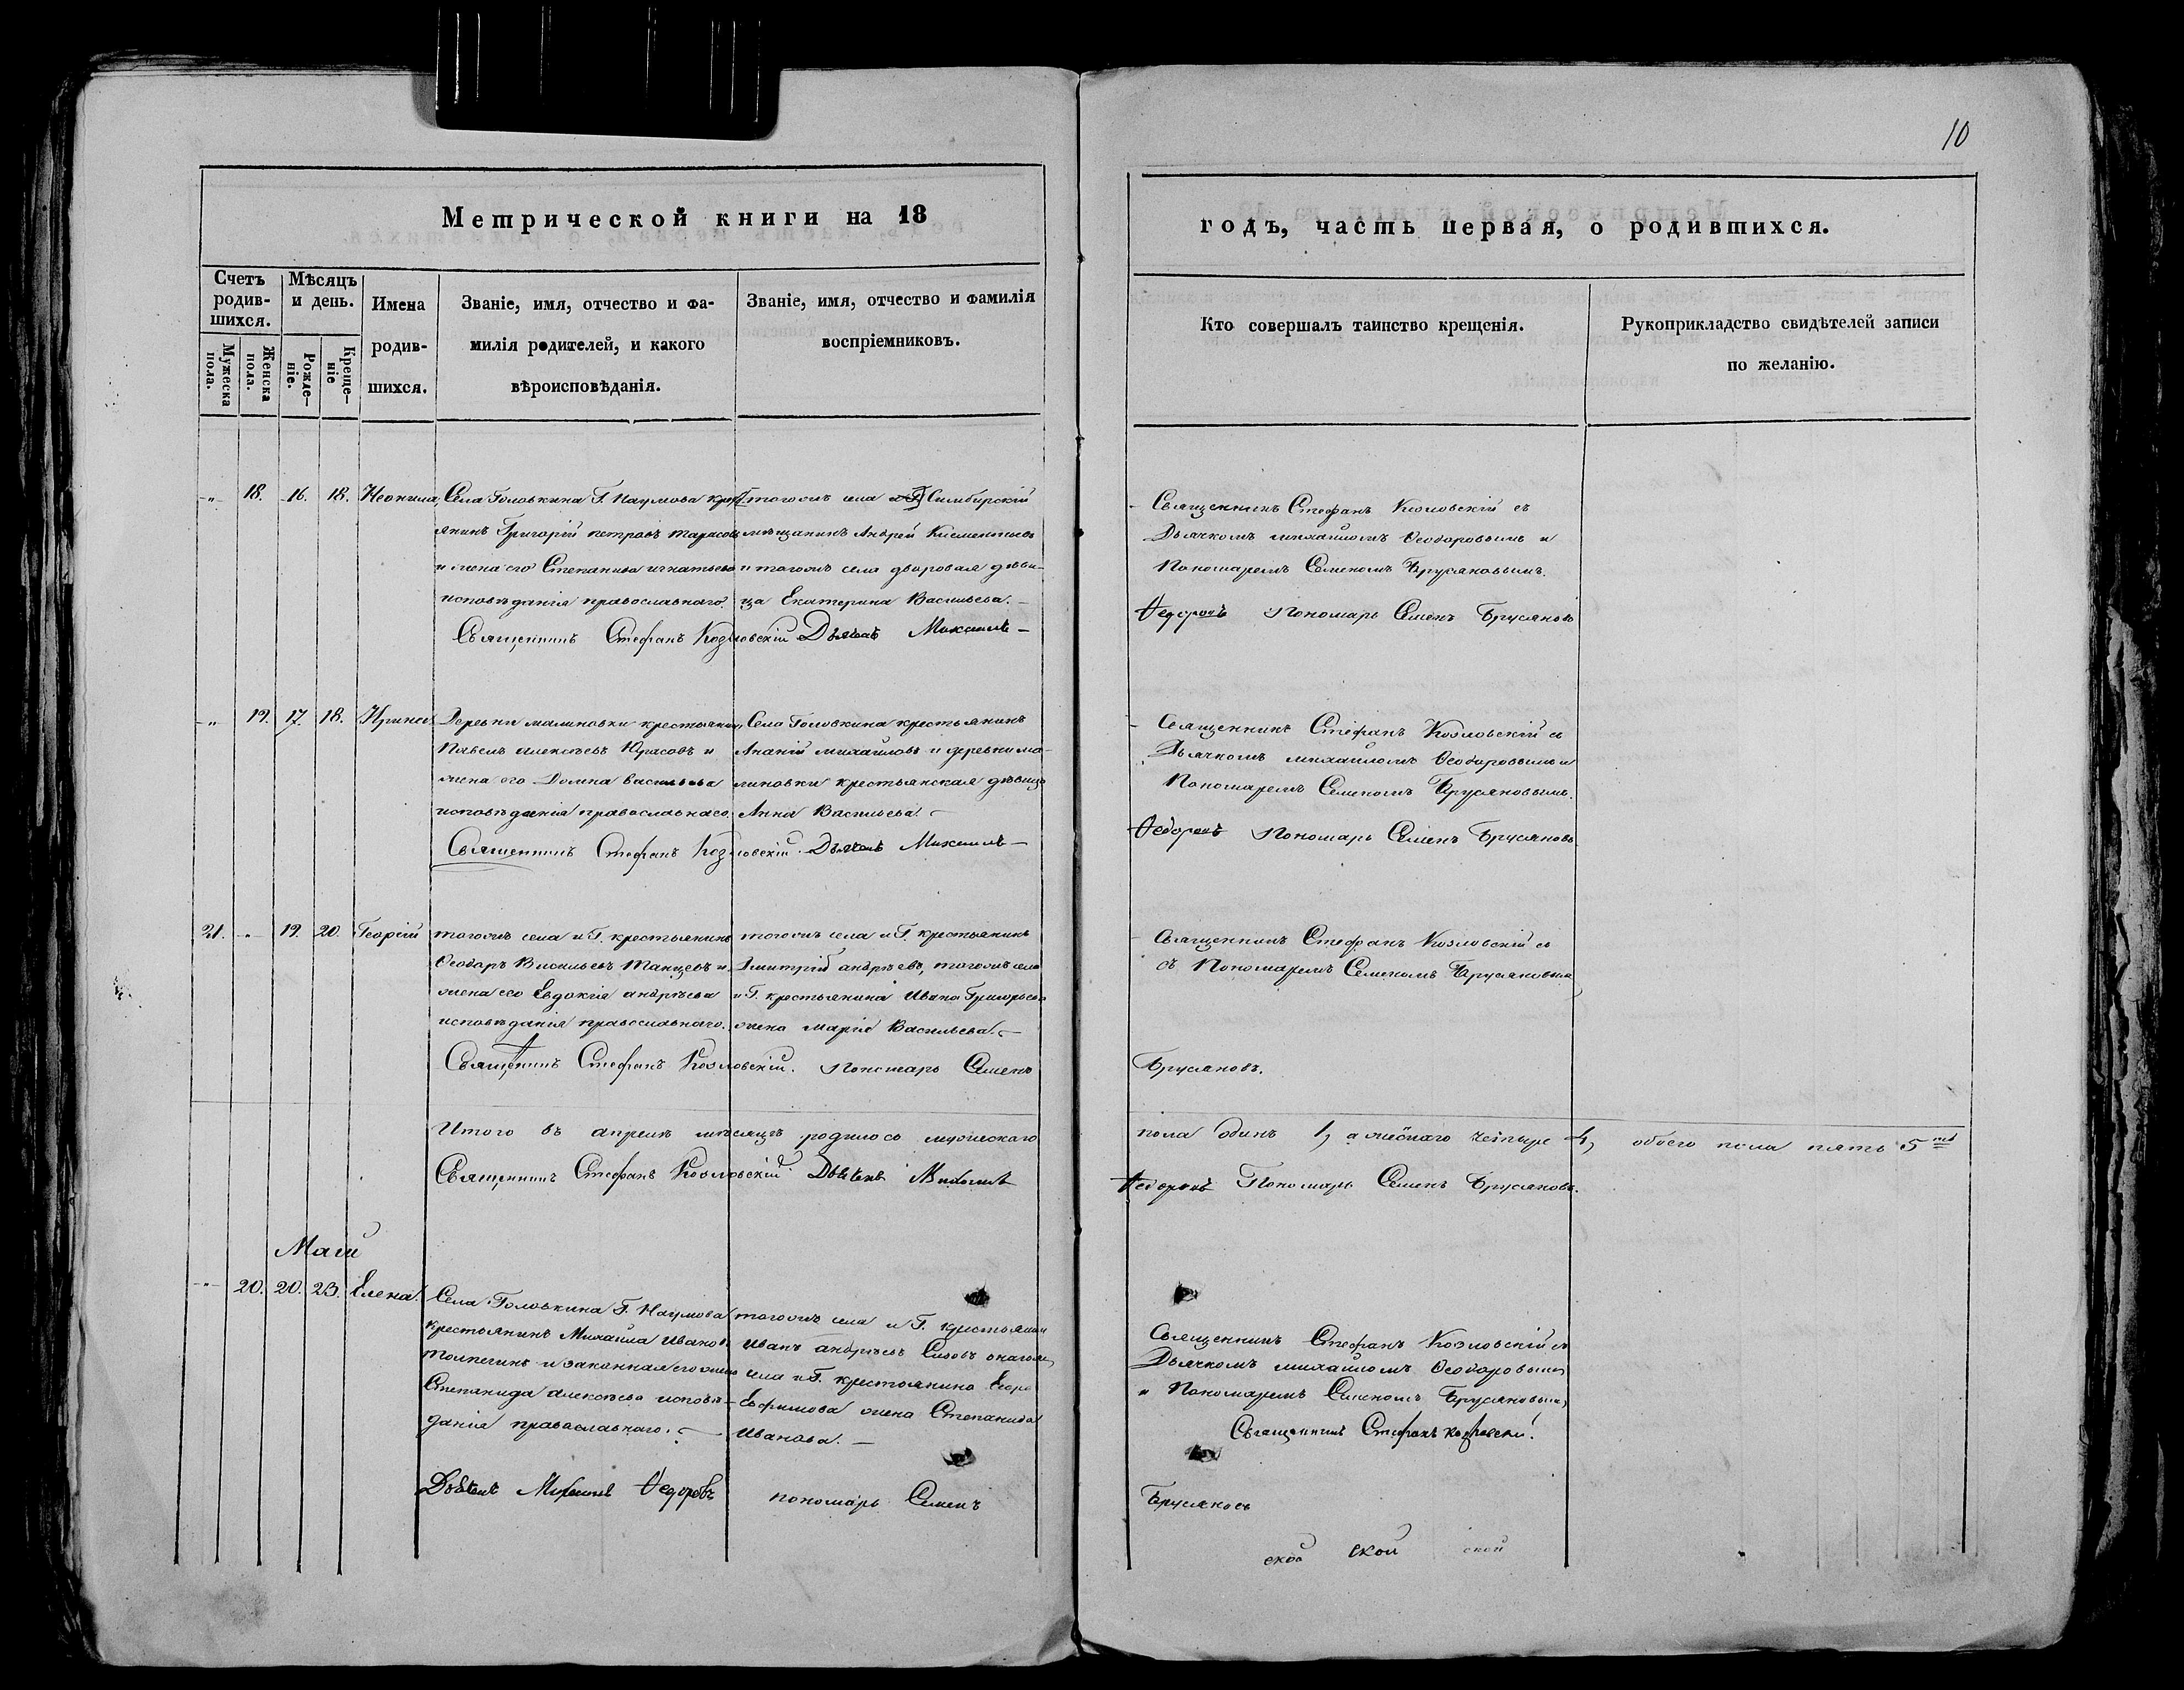 10
Метрической книги на 18
годъ, часть первая, о родившихся.
Счетъ родив-шихся.
Мужеска пола.
Женска пола.
Мѣсяцъ и день.
Рожде-ніе.
Креще-ніе
Имена родив-шихся.
Званіе, имя, отчество и фа-
милія родителей, и какого
вѣроисповѣданія.
Званіе, имя, отчество и фамилія
воспріемниковъ.
Кто совершалъ таинство крещенія.
Рукоприкладство свидѣтелей записи
по желанію.
-"- 18. 16. 18. Неонила
Села Головкина Г. Наумова крест
янинъ Григорій петровъ тарасовъ
и жена его Степанида игнатьева
исповѣданія православнаго.
тогожъ села Симбирскій
мѣщанинъ Андрей Клементьевъ
и тогожъ села дворовая дѣви-
ца Екатерина Васильева.
Священникъ Стефанъ Козловскій съ
Дьячкомъ михаиломъ Ѳеодоровымъ и
Пономаремъ Семеномъ Брусяновымъ.
Священникъ Стефанъ Козловскій Дьячокъ Михаилъ
Ѳедоровъ Пономарь Семенъ Брусяновъ
-"- 19. 17. 18. Ирина
Деревни малиновки крестьянинъ
Павелъ алексѣевъ Юрасовъ и
жена его Домна васильева
исповѣданія православнаго.
Села Головкина крестьянинъ
Ананій михайловъ и деревни ма-
линовки крестьянская дѣвица
Анна Васильева.
Священникъ Стефанъ Козловскій съ
Дьячкомъ михаиломъ Ѳеодоровымъ и
Пономаремъ Семеномъ Брусяновымъ.
Священникъ Стефанъ Козловскій. Дьячокъ Михаилъ
Ѳедоровъ Пономарь Семенъ Брусяновъ
21. -"- 19. 20. Георгій
тогожъ села и Г. крестьянинъ
Ѳеодоръ Васильевъ Танцевъ и
жена его Евдокія андрѣева
исповѣданія православнаго.
тогожъ села и Г. крестьянинъ
Дмитрій андрѣевъ, тогожъ села
и Г. крестьянина Ивана Григорьева
жена марія Васильева.
Священникъ Стефанъ Козловскій съ
съ Пономаремъ Семеномъ Брусяновымъ
Священникъ Стефанъ Козловскій. Пономарь Семенъ
Брусяновъ.
Итого въ апрелѣ мѣсяцѣ родилось мужескаго
пола одинъ 1, а женскаго четыре 4, обоего пола пять 5
Священникъ Стефанъ Козловскій Дьячокъ Михаилъ
Ѳедоровъ Пономарь Семенъ Брусяновъ.
Маій
-"- 20. 20. 23. Елена.
Села Головкина Г. Наумова
крестьянинъ Михаила Ивановъ
и законная его жена
Степанида алексѣева исповѣ-
данія православнаго.
тогожъ села и Г. крестьянинъ
Иванъ андрѣевъ
села и Г. крестьянина Егора
Ефимова жена Степанида
Иванова.
Священникъ Стефанъ Козловскій съ
Дьячкомъ михаиломъ Ѳеодоровымъ
и Пономаремъ Семеномъ Брусяновымъ
Священникъ Стефанъ Козловскій.
Дьячокъ Михаилъ Ѳедоровъ пономарь Семенъ
Брусяновъ
ской ской ской